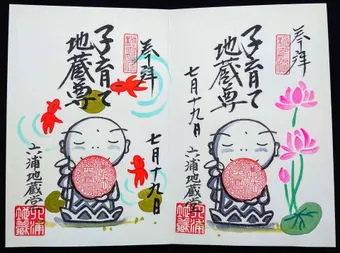 奉拝
子育て
地蔵尊
七月十九日
六浦地蔵堂
奉拝
子育て
地蔵尊
七月十九日
六浦地蔵堂